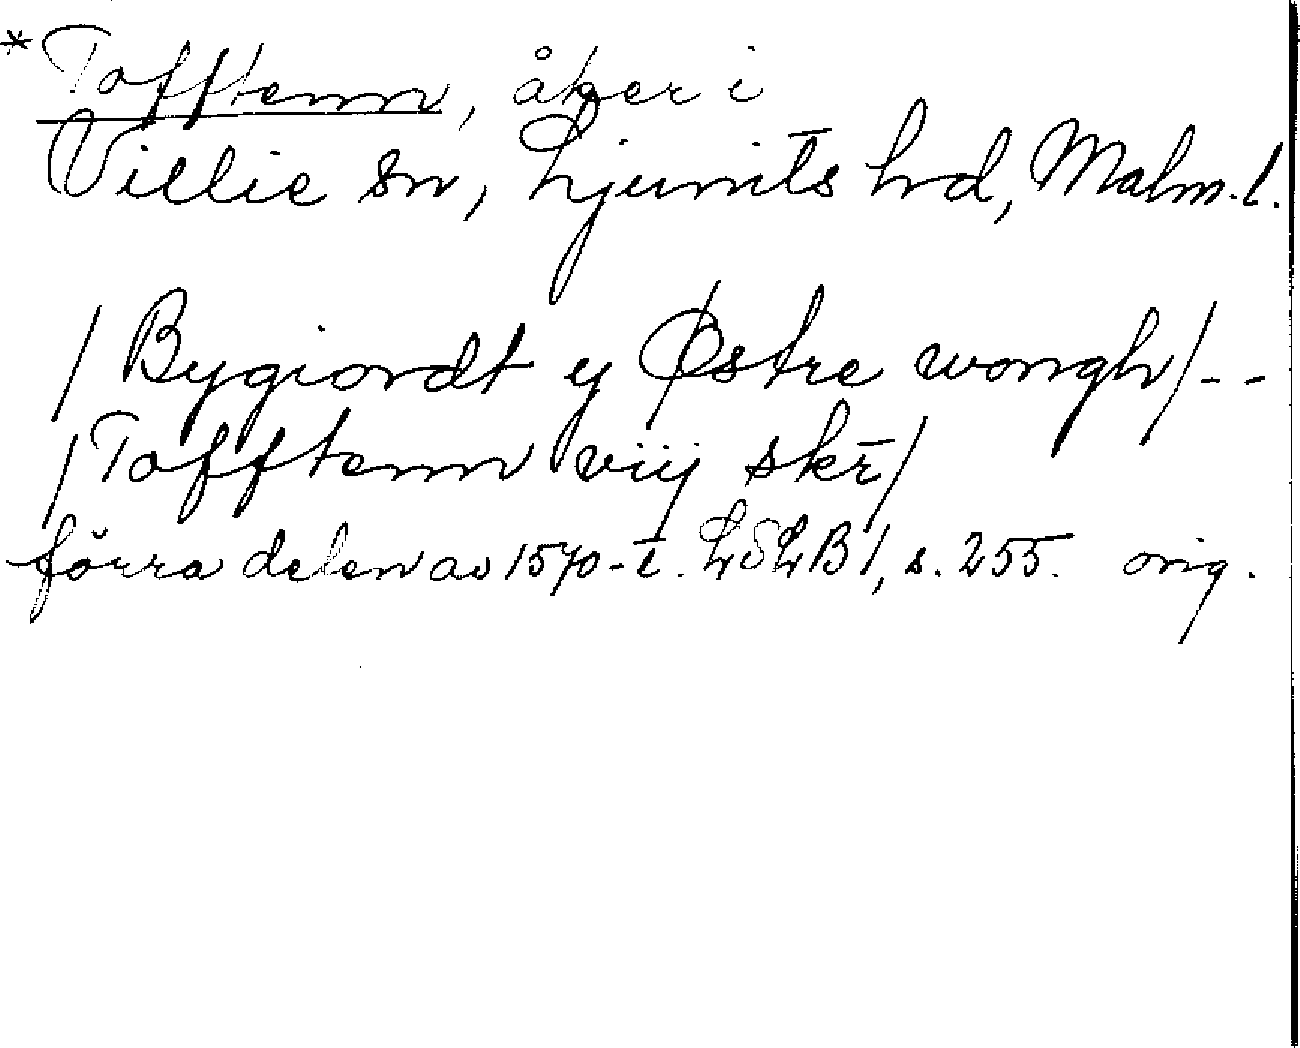 * Tofftenn, åker i
Villie sn, Ljunits hd, Malm. l.
/ Bygiordt y Østre wongh / - -
/ Tofftenn viij skr̄ /
förra delen av 1570-t. LSLB 1, s. 255. orig.